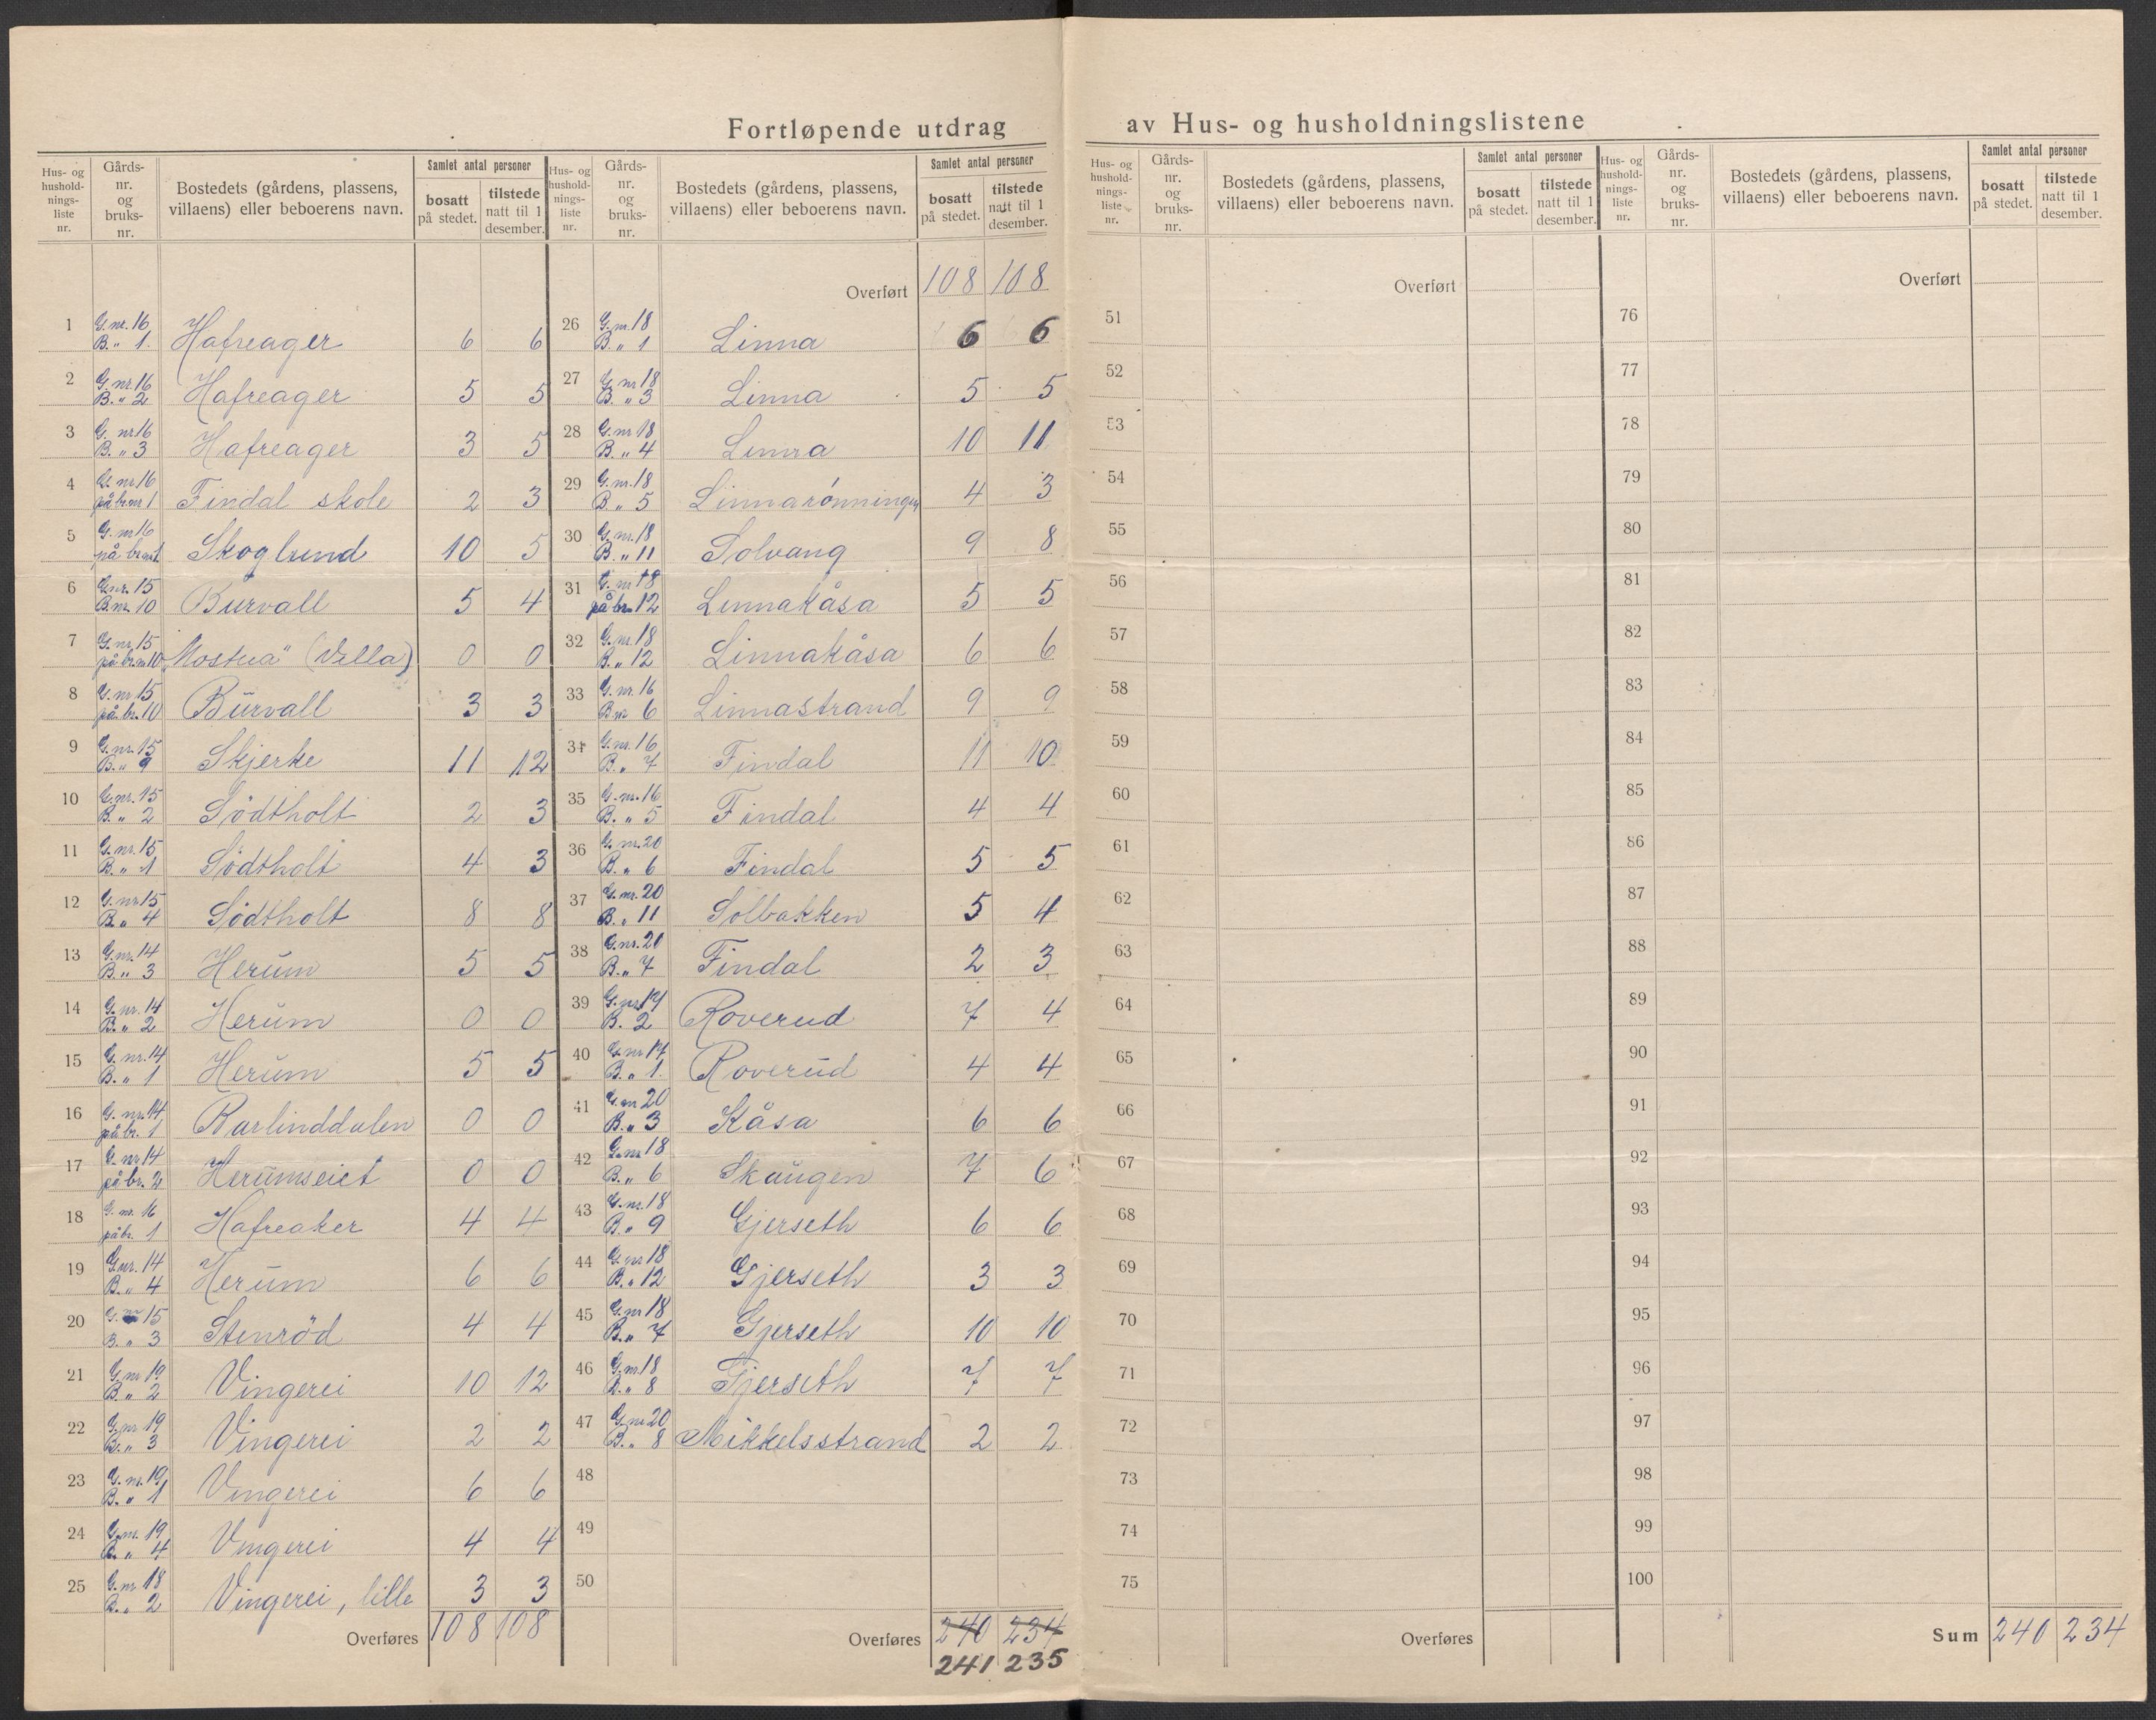 Fortløpende utdrag av Hus- og husholdningslistene
Hus- og hushold-nings-liste nr. Gårds-nr. og bruks-nr. Bostedets (gårdens, plassens, villaens) eller beboerens navn. Samlet antal personer bosatt på stedet. tilstede natt til 1 desember.
1 G. nr. 16 B. " 1. Hafreager 6 6
2 G. nr. 16 B. " 2 Hafreager 5 5
3 G. nr 16 B. " 3 Hafreager 3 5
4 G. nr. 16 på br. nr 1 Findal skole 2 3
5 G. nr 16 på br. nr 1. Skoglund 10 5
6 G. nr. 15 B. nr. 10 Burvall 5 4
7 G. nr. 15 på br. nr 10 "Mostua" (Villa) 0 0
8 G. nr 15 på br. 10 Burvall 3 3
9 G. nr. 15 B. " 9 Skjerke 11 12
10 G. nr. 15 B. " 2 Södtholt 2 3
11 G. nr. 15 B. " 1 Södtholt 4 3
12 G. nr 15 B. " 4 Södtholt 8 8
13 G. nr. 14 B. " 3 Herum 5 5
14 G. nr. 14 B. " 2 Herum 0 0
15 G. nr. 14 B. " 1 Herum 5 5
16 G. nr. 14 på br. 1 Barlinddalen 0 0
17 G. nr 14 på br. 2 Herumseiet 0 0
18 G. nr. 16 på br. 1 Hafreaker 4 4
19 G. nr. 14 B. " 4 Herum 6 6
20 G. nr 15 B. " 3 Stenröd 4 4
21 G. nr 19 B. " 2 Vingerei 10 12
22 G. nr 19 B. " 3 Vingerei 2 2
23 G. nr. 19 B. " 1 Vingerei 6 6
24 G. nr. 19 B. " 4 Vingerei 4 4
25 G. nr 18 B. " 2 Vingerei, lille 3 3
Overføres 108 108
Hus- og hushold-nings-liste nr. Gårds-nr. og bruks-nr. Bostedets (gårdens, plassens, villaens) eller beboerens navn. Samlet antal personer bosatt på stedet. tilstede natt til 1 desember.
Overført 108 108
26 G. nr 18 B. " 1 Linna 6 6
27 G. nr 18 B. " 3 Linna 5 5
28 G. nr 18 B. " 4 Linna 10 11
29 G. nr. 18 B. " 5 Linnarönningen 4 3
30 G. nr. 18 B. " 11 Solvang 9 8
31 G. nr 18 på br. 12 Linnakåsa 5 5
32 G. nr. 18 B. " 12 Linnakåsa 6 6
33 G. nr. 16 B nr 6 Linnastrand 9 9
34 G. nr. 16 B. " 7 Findal 11 10
35 G. nr. 16 B. " 5 Findal 4 4
36 G. nr. 20 B. " 6 Findal 5 5
37 G. nr. 20 B. " 11 Solbakken 5 4
38 G. nr. 20 B. " 7 Findal 2 3
39 G. nr 17 B. 2 Roverud 7 4
40 G. nr 17 B. " 1. Roverud 4 4
41 G. nr 20 B. " 3 Kåsa 6 6
42 G. nr 18 B. " 6 Skaugen 7 6
43 G. nr. 18 B. " 9 Gjerseth 6 6
44 G. nr 18 B. " 12 Gjerseth 3 3
45 G. nr 18 B. " 7 Gjerseth 10 10
46 G. nr 18 B. " 8 Gjerseth 7 7
47 G. nr 20 B. " 8 Mikkelsstrand 2 2
48
49
50
Overføres 240 234
241 235
Hus- og hushold-nings-liste nr. Gårds-nr. og bruks-nr. Bostedets (gårdens, plassens, villaens) eller beboerens navn. Samlet antal personer bosatt på stedet. tilstede natt til 1 desember.
Overført
51
52
53
54
55
56
57
58
59
60
61
62
63
64
65
66
67
68
69
70
71
72
73
74
75
Overføres
Hus- og hushold-nings-liste nr. Gårds-nr. og bruks-nr. Bostedets (gårdens, plassens, villaens) eller beboerens navn. Samlet antal personer bosatt på stedet. tilstede natt til 1 desember.
Overført
76
77
78
79
80
81
82
83
84
85
86
87
88
89
90
91
92
93
94
95
96
97
98
99
100
Sum 240 234